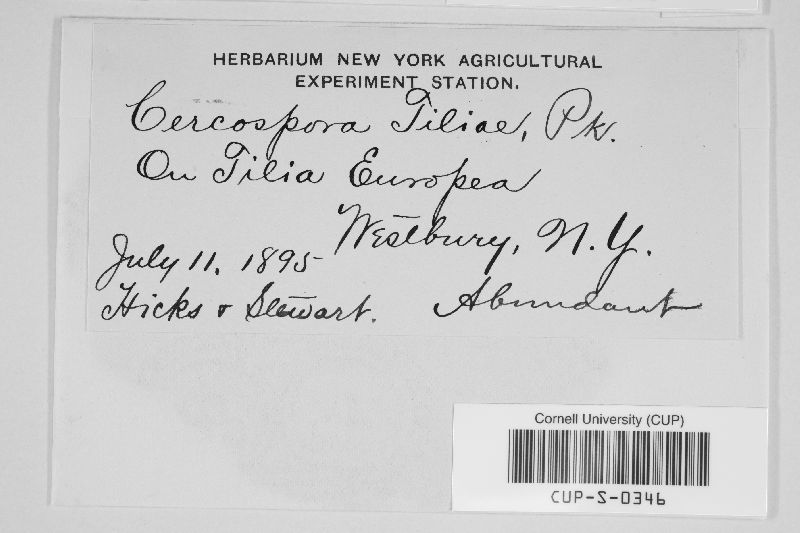 HERBARIUM NEW YORK AGRICULTURAL
EXPERIMENT STATION.
Cercospora Tiliae, Pk.
On Tilia Europea
Westbury, N.Y.
July 11, 1895
Hicks & Stewart. Abundant
Cornell University (CUP)
CUP-S-0346